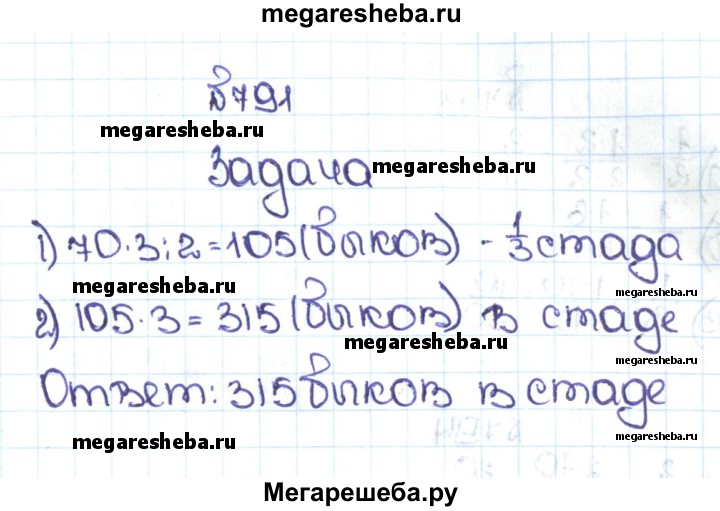 megaresheba.ru
№791
megaresheba.ru
Задача megaresheba.ru
1) 70·3:2=105(быков) - 1/3 стада
megaresheba.ru megaresheba.ru
2) 105·3=315(быков) в стаде
megaresheba.ru megaresheba.ru
Ответ: 315 быков в стаде
megaresheba.ru megaresheba.ru
Мегарешеба.ру